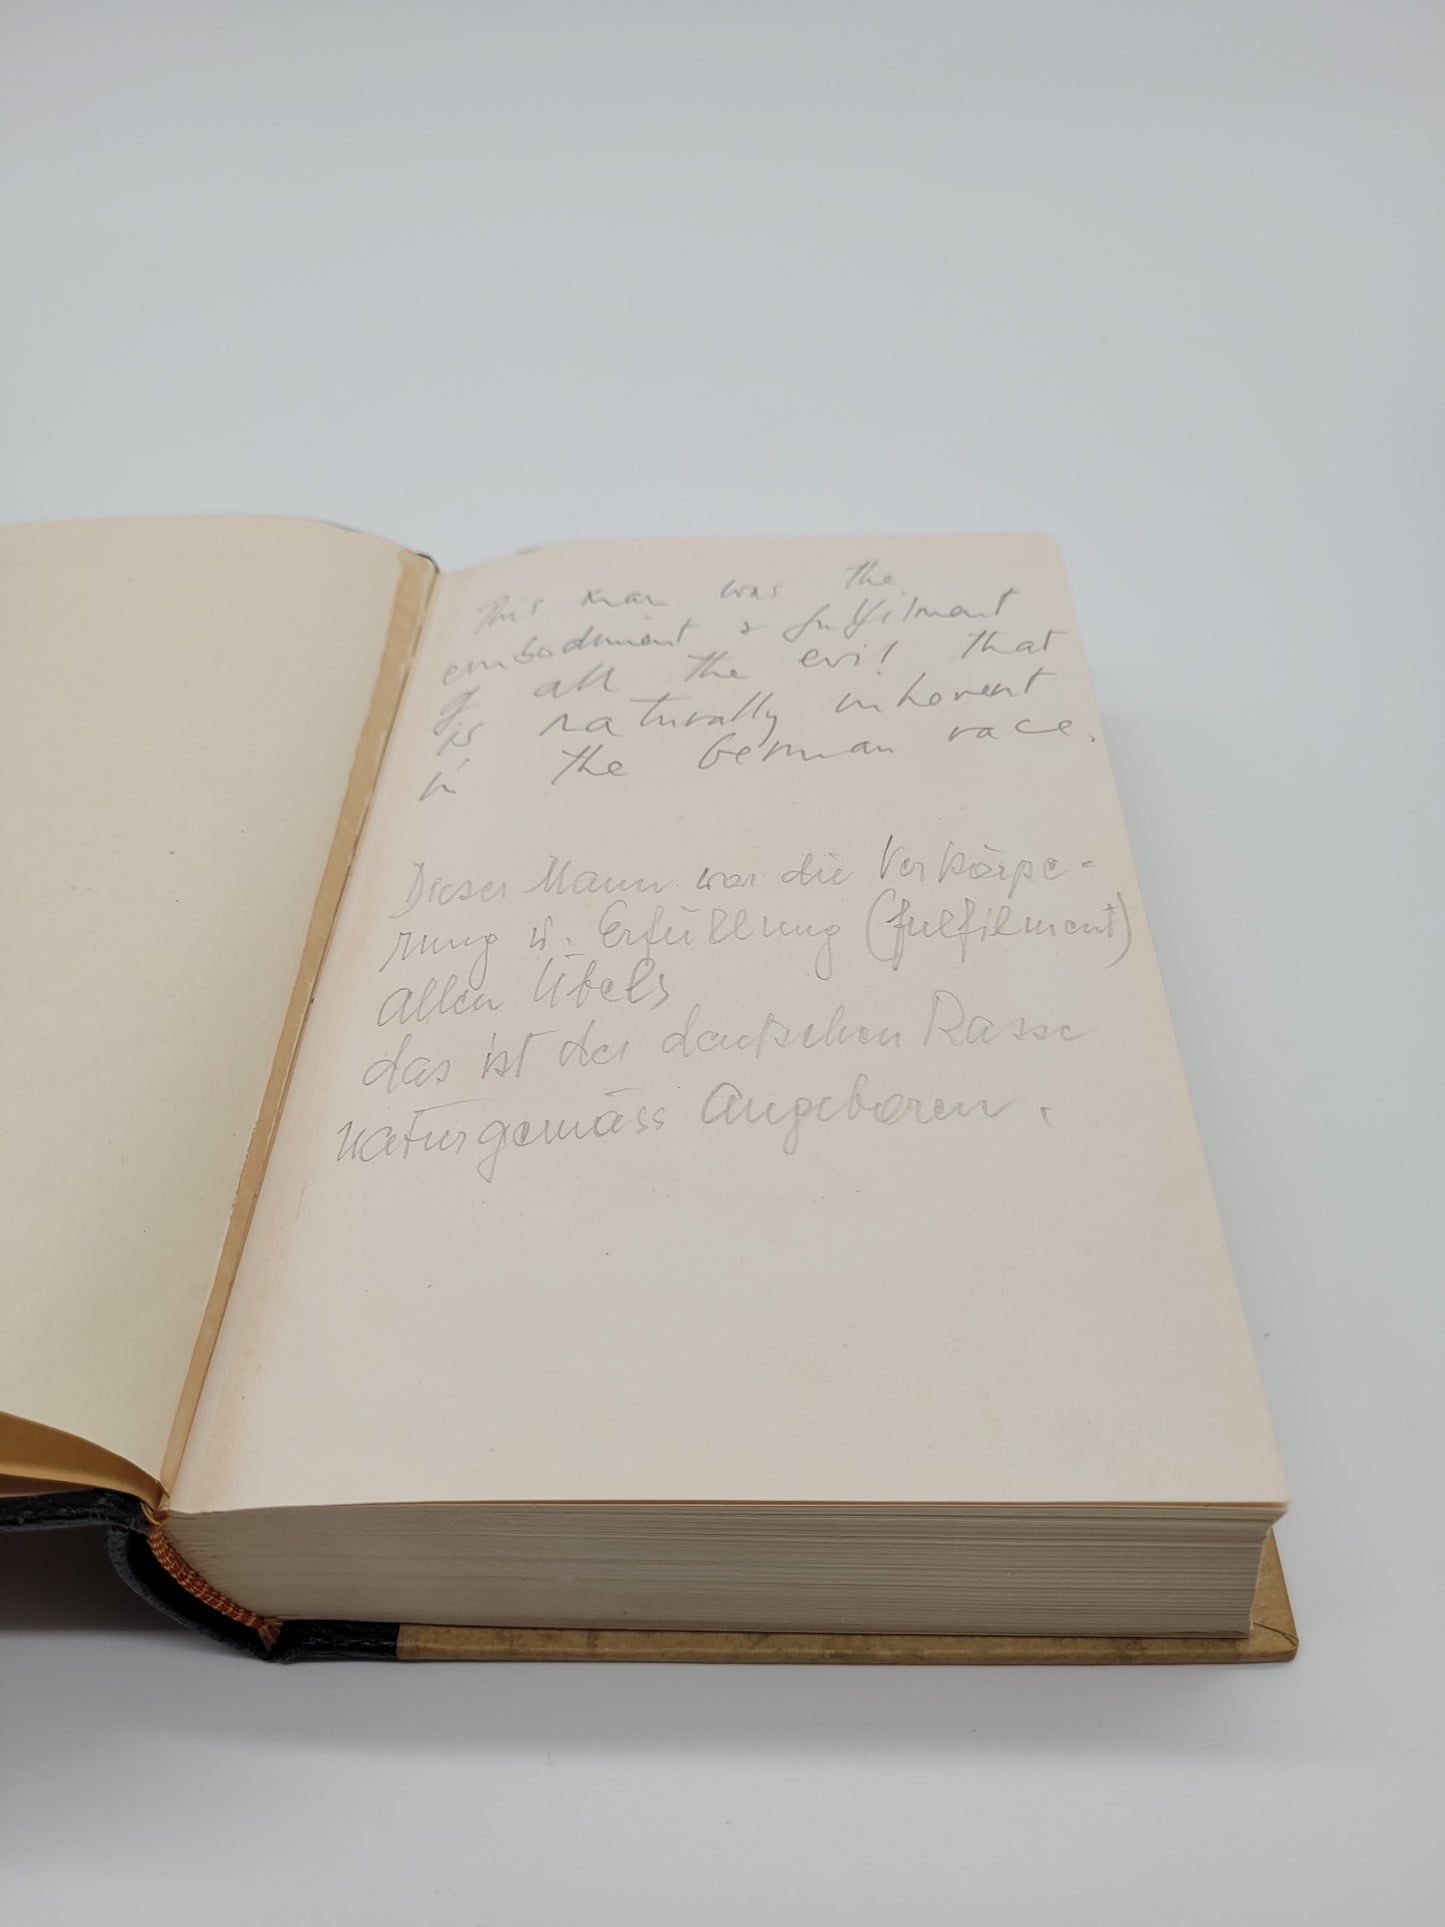 This man was the
embodiment & fulfilment
of all the evil that
is naturally inherent
in the German race.
Dieser Mann war die Verkörpe-
rung u. Erfüllung (fulfilment)
allen Übels
das ist der deutschen Rasse
naturgemäss Angeboren.